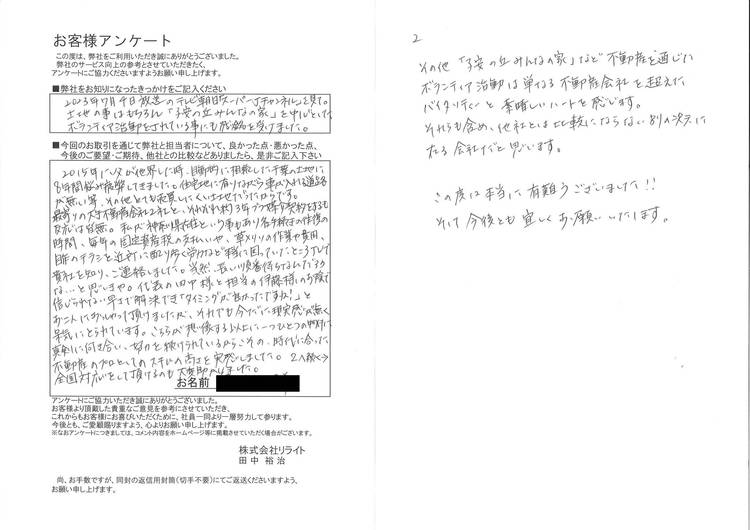 お客様アンケート
この度は、弊社をご利用いただき誠にありがとうございました。
弊社のサービス向上の参考とさせていただきたく、
アンケートにご協力くださいますようお願い申し上げます。
■弊社をお知りになったきっかけをご記入ください
2023年7月4日放送のテレビ朝日スーパーJチャンネルを見て。
土地の事はもちろん「子安の丘みんなの家」を中心とした
ボランティア活動をされている事にも感銘を受けました。
■今回のお取引を通じて弊社と担当者について、良かった点・悪かった点、
今後のご要望・ご期待、他社との比較などありましたら、是非ご記入下さい
2015年に父が他界した時、自動的に相続した千葉の土地に
8年間悩み疲弊してきました。住宅地に有りながら車が入れる道路
が無い等、その他とても売買しにくい土地だったからです。
最寄りの大手不動産会社2社と、それぞれ約3年ずつ媒介契約をするも
反応は皆無。私が神奈川県在住という事もあり各手続きの往復の
時間、毎年の固定資産税の支払いや、草メリリの作業や費用、
自作のチラシを近所に配り歩く労力など本当に困っていたところTVで
貴社を知り、ご連絡しました。当然、長い順番待ちなんだろう
な…と思いきや。代表の田中様と担当の伊藤様のお陰で
信じられない早さで解決でき「タイミングが良かったですね!」と
お二人におっしゃって頂けましたが、それでも今だに現実感が無く
呆気にとられています。こちらが想像する以上に一つひとつの物件に
真剣に向き合い、努力を続けられているからこその、時代に合った
不動産のプロとしてのスキルの高さを実感しました。 2へ続く⇒
全国対応をして頂けるのも大変助かりました。
お名前
アンケートにご協力いただき誠にありがとうございました。
お客様より頂戴した貴重なご意見を参考にさせていただき、
これからもお客様にお喜びいただくために、社員一同より一層努力して参ります。
今後とも、ご愛顧賜りますよう、心よりお願い申し上げます。
※なおアンケートにつきましては、コメント内容をホームページ等に掲載させていただく場合がございます。
株式会社リライト
田中 裕治
尚、お手数ですが、同封の返信用封筒(切手不要)にてご返送くださいますよう、
お願い申し上げます。
2
その他「子安の丘みんなの家」など不動産を通じた
ボランティア活動は単なる不動産会社を超えた
バイタリティーと素晴しいハートを感じます。
それらも含め、他社とは比較にならない別の次元に
在る会社だと思います。
この度は本当に有難うございました!!
そして今後とも宜しくお願いいたします。